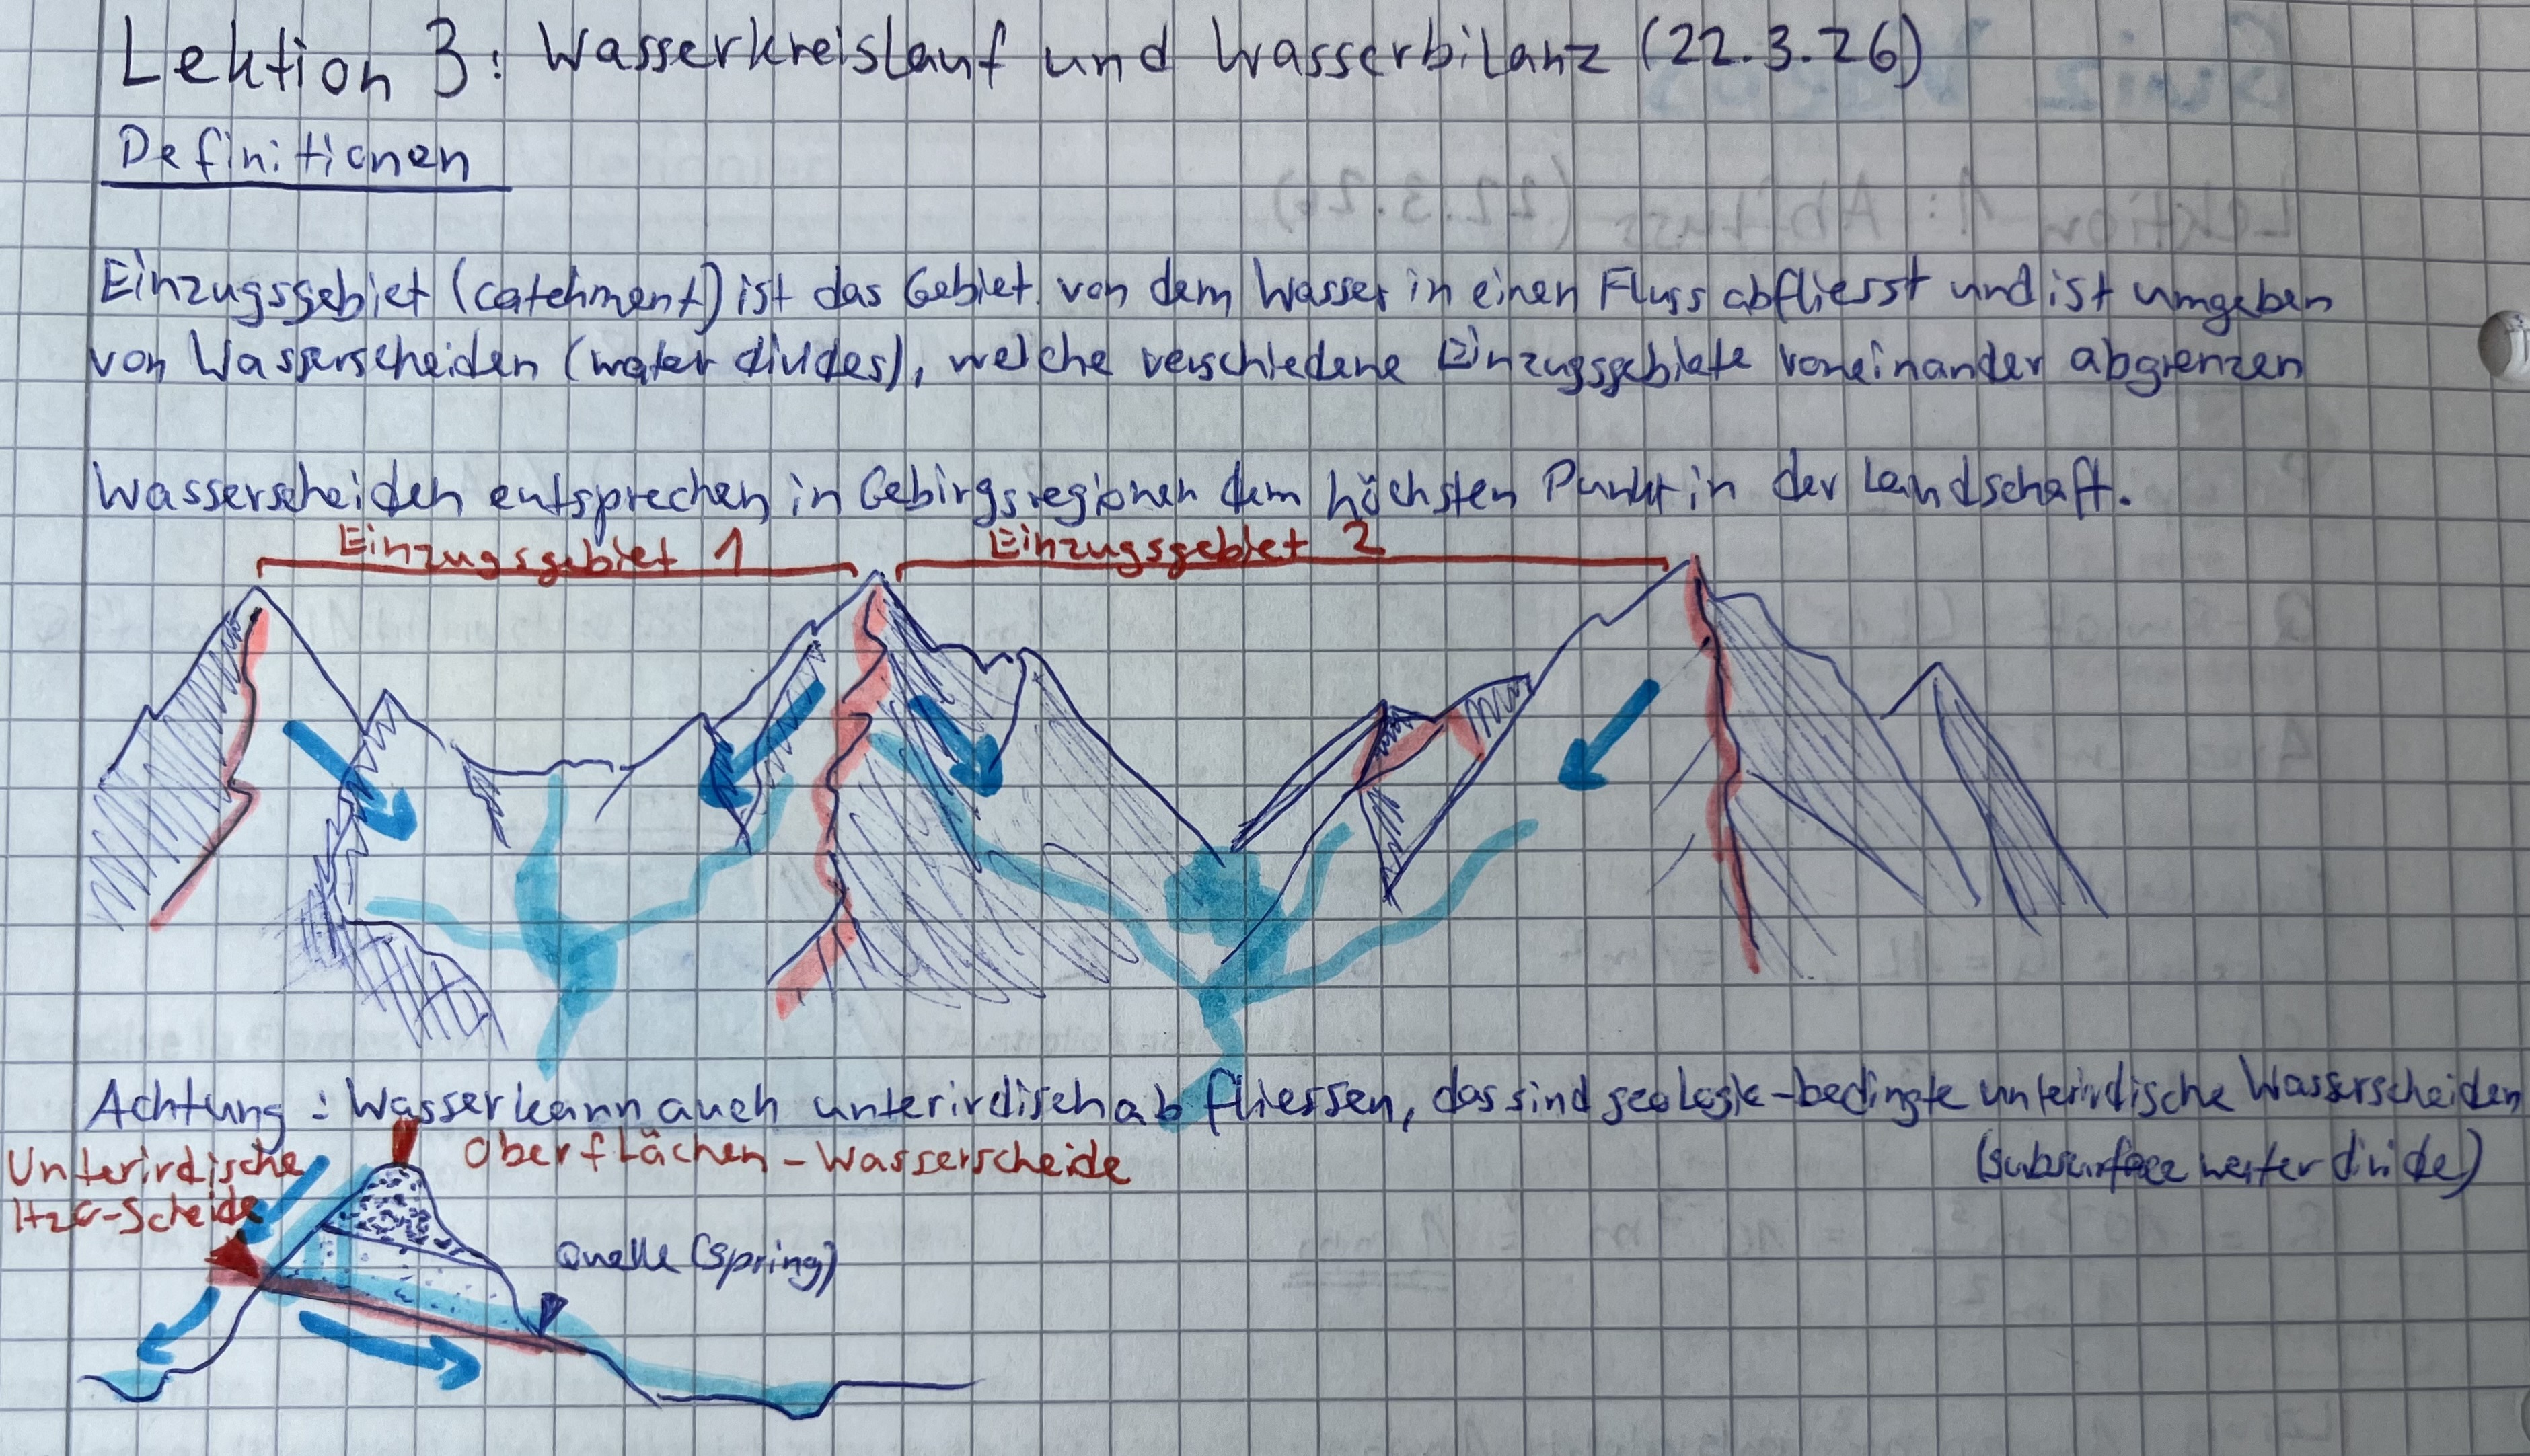 Lektion 3: Wasserkreislauf und Wasserbilanz (22.3.26)
Definitionen
Einzugsgebiet (catchment) ist das Gebiet von dem Wasser in einen Fluss abfliesst und ist umgeben
von Wasserscheiden (water divides), welche verschiedene Einzugsgebiete voneinander abgrenzen
Wasserscheiden entsprechen in Gebirgsregionen dem höchsten Punkt in der Landschaft.
Einzugsgebiet 1
Einzugsgebiet 2
Achtung: Wasser kann auch unterirdisch abfliessen, das sind geologie-bedingte unterirdische Wasserscheiden
(subsurface water divide)
Unterirdische
H2O-Scheide
Oberflächen-Wasserscheide
Quelle (spring)